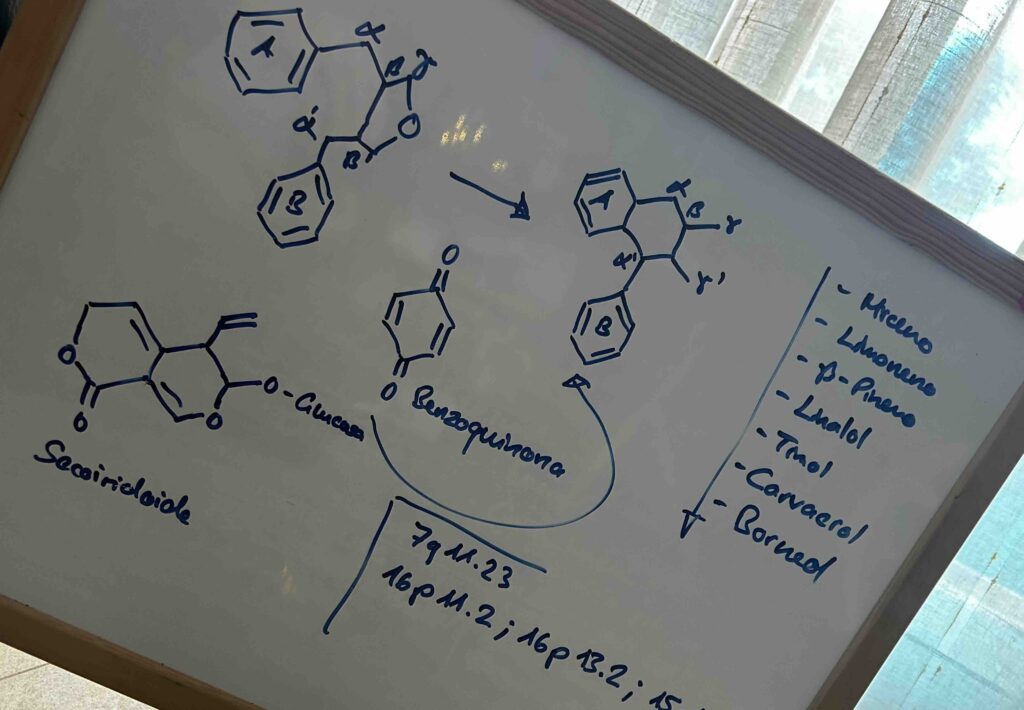 A
α
B
γ
O
α'
B'
B
A
α
B
γ
α'
γ'
B
O
O
Benzoquinona
O
O
O
O - Glucosa
Secoiridoide
- Mirceno
- Limoneno
- β-Pineno
- Linalol
- Timol
- Carvacrol
- Borneol
7q 11.23
16p 11.2 ; 16p 13.2 ; 15